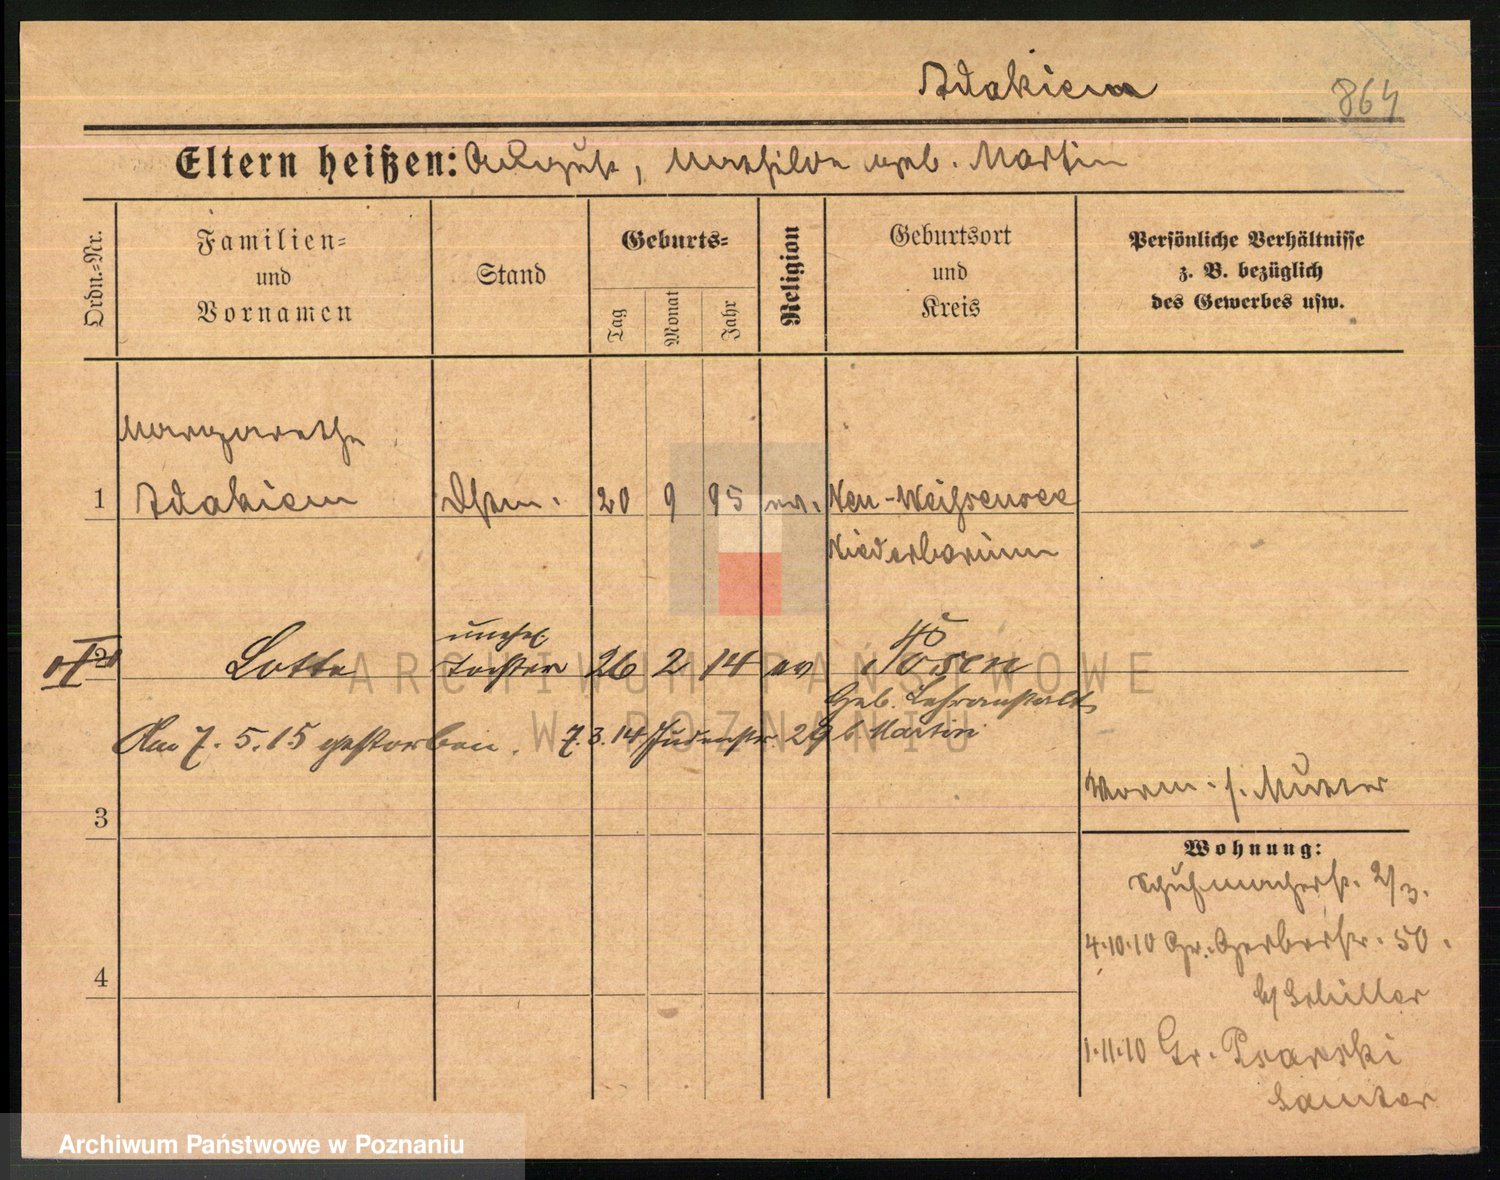 Adakiem
864
Eltern heißen: August, Mathilde geb. Martin
Ordn.-Nr.
Familien-
und
Vornamen
Stand
Geburts-
Tag
Monat
Jahr
Religion
Geburtsort
und
Kreis
Persönliche Verhältnisse
z. B. bezüglich
des Gewerbes usw.
Margarethe
1 Adakiem Dstm. 20 9 95 ev. Neu-Weißensee
Niederbarnim
unehel.
2 Lotte Tochter 26 2 14 ev Posen
Geb. Lehranstalt
Am 7. 5. 15 gestorben. 7.3.14 Judenstr. 29 b Martin
3
Vorm. s. Mutter
Wohnung:
Schuhmacherstr. 2/3.
4.10.10 Gr. Gerberstr. 50.
b/ Schiller
4
1.11.10 Gr. Psarski
Samter
ARCHIWUM PAŃSTWOWE
W POZNANIU
Archiwum Państwowe w Poznaniu